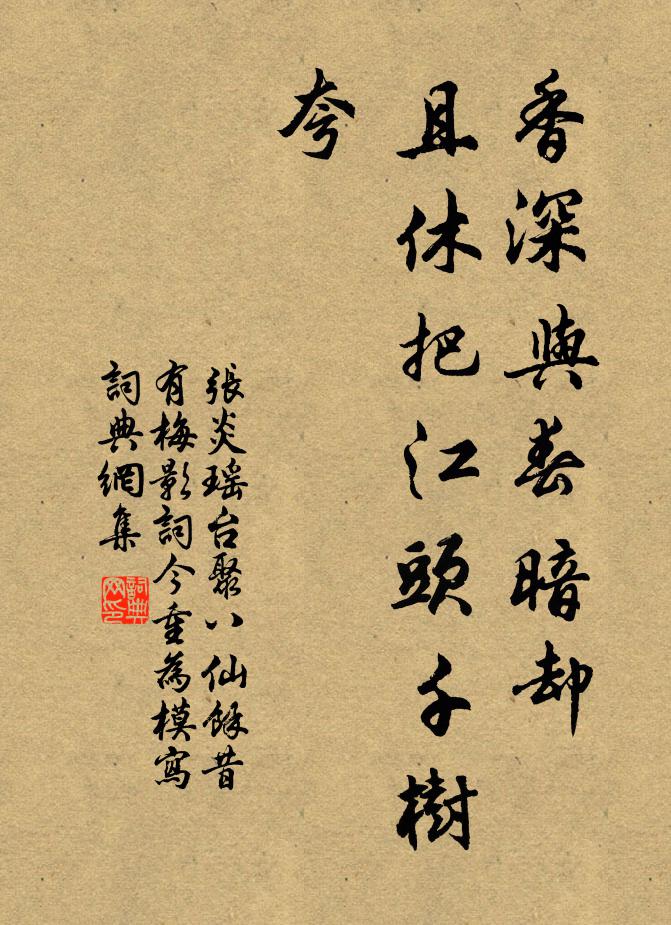 香深與春暗却
且休把江頭千樹
夸
張炎瑶台聚八仙餘昔
有梅影詞今重為模寫
詞典網集
詞典網印